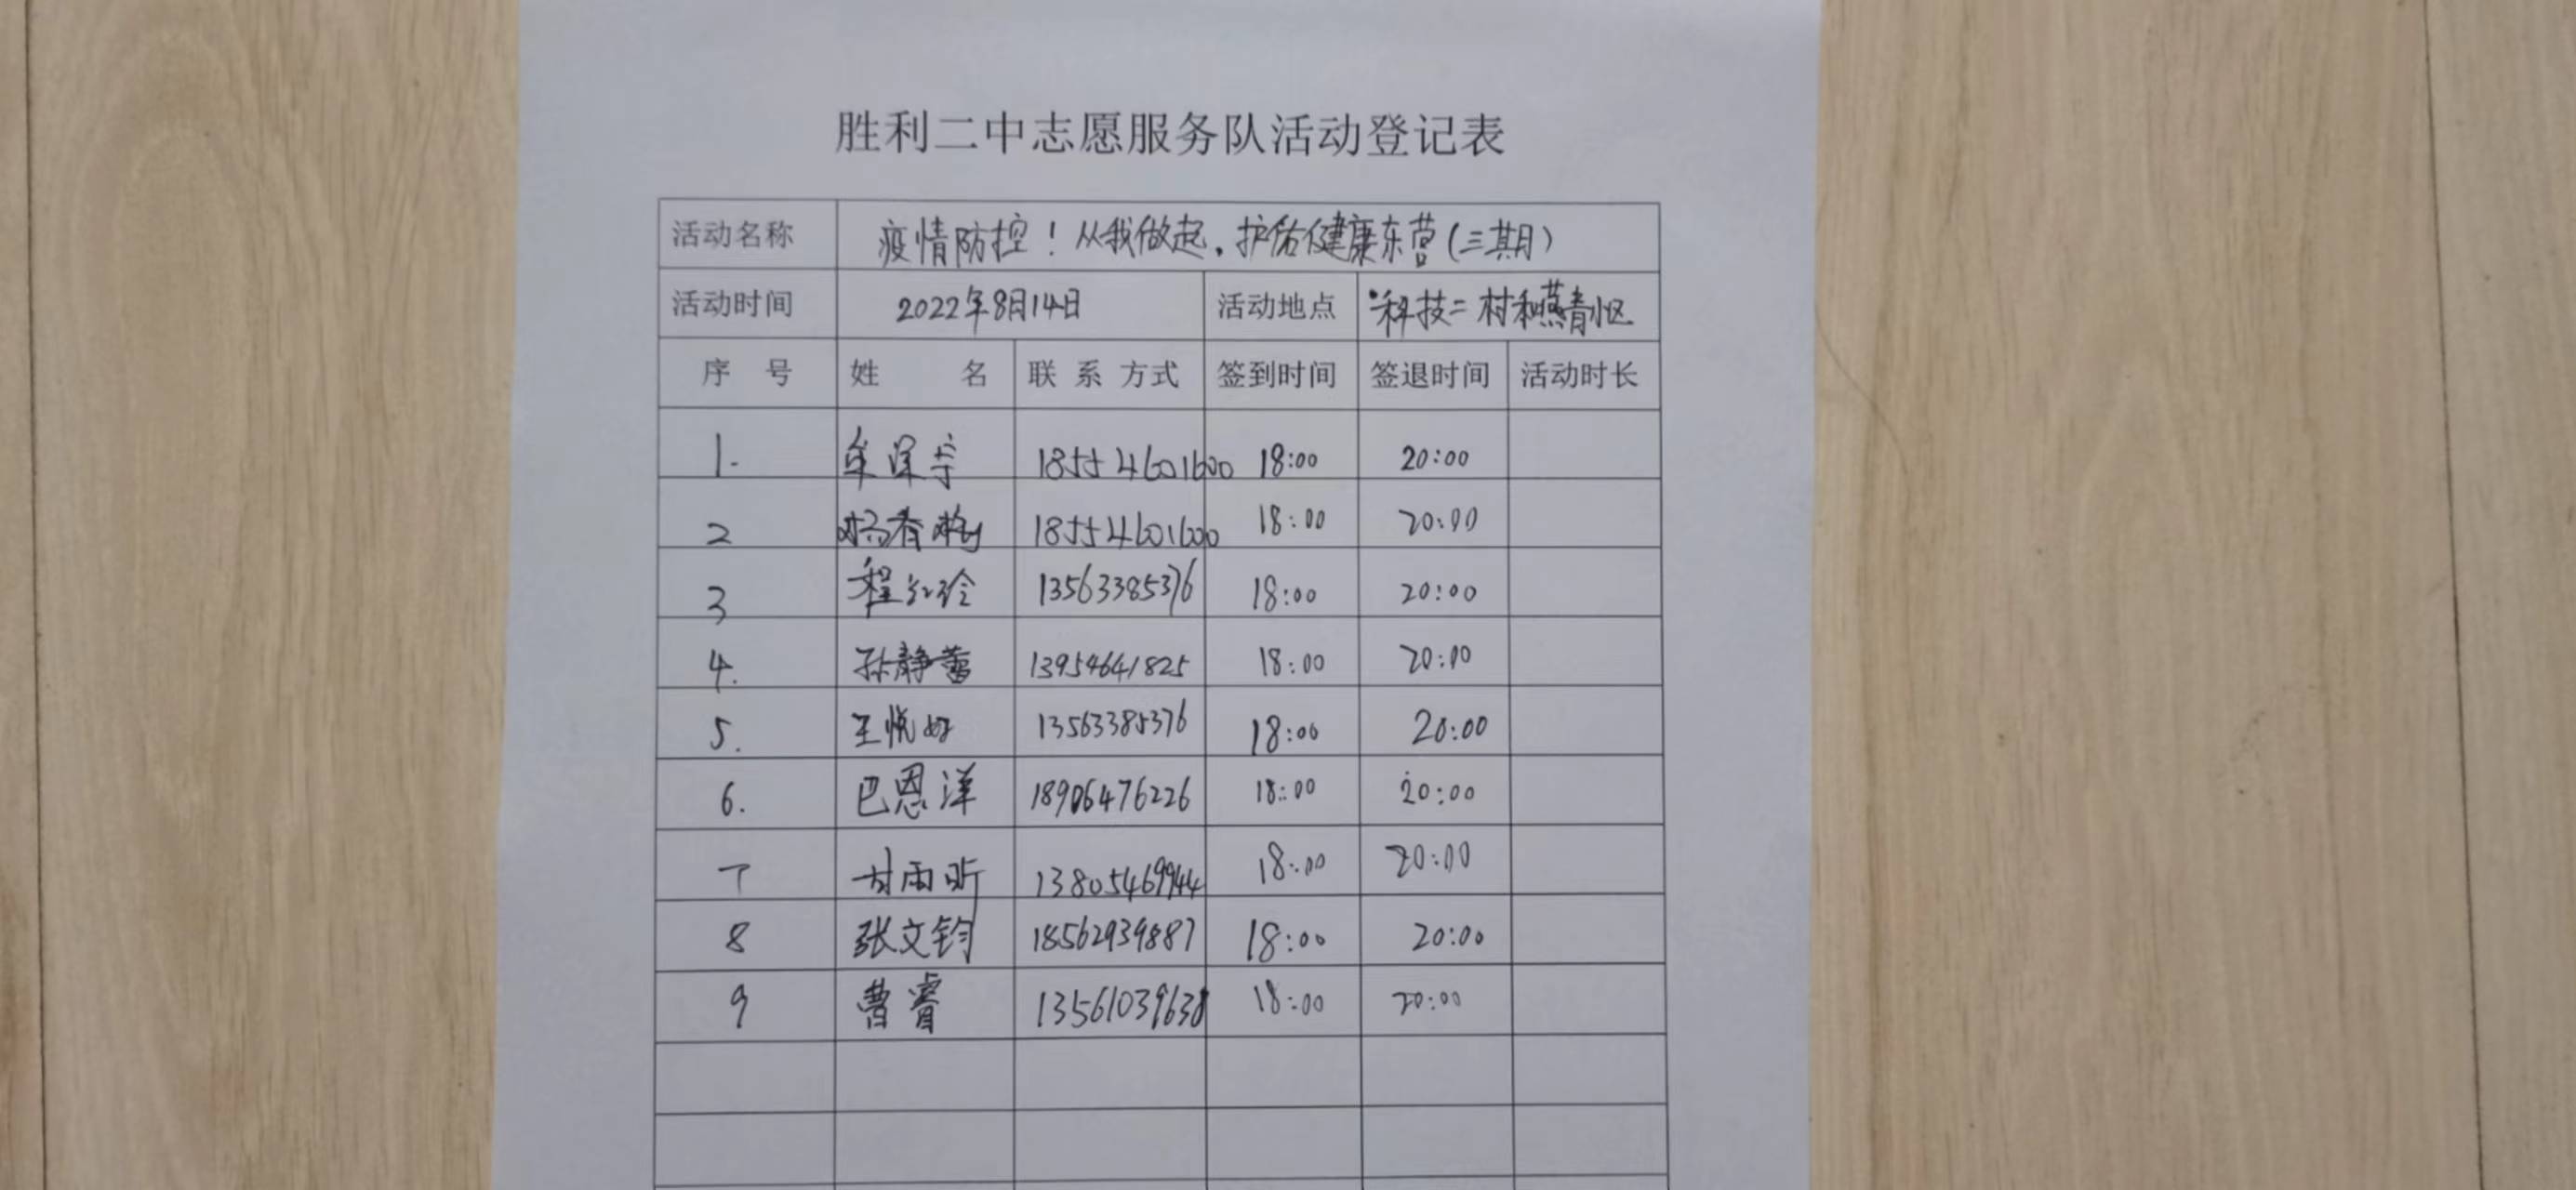 胜利二中志愿服务队活动登记表
活动名称 疫情防控！从我做起，护佑健康东营(三期)
活动时间 2022年8月14日 活动地点 科技二村和燕青小区
序 号 姓 名 联 系 方式 签到时间 签退时间 活动时长
1. 牟泽宇 18554601600 18:00 20:00
2 杨春梅 18554601600 18:00 20:00
3 程红玲 13563385376 18:00 20:00
4. 孙静蕾 13954641825 18:00 20:00
5. 王悦好 13563385376 18:00 20:00
6. 巴恩洋 18906476226 18:00 20:00
7 甘雨昕 13805469944 18:00 20:00
8 张文钧 18562939887 18:00 20:00
9 曹睿 13561039638 18:00 20:00